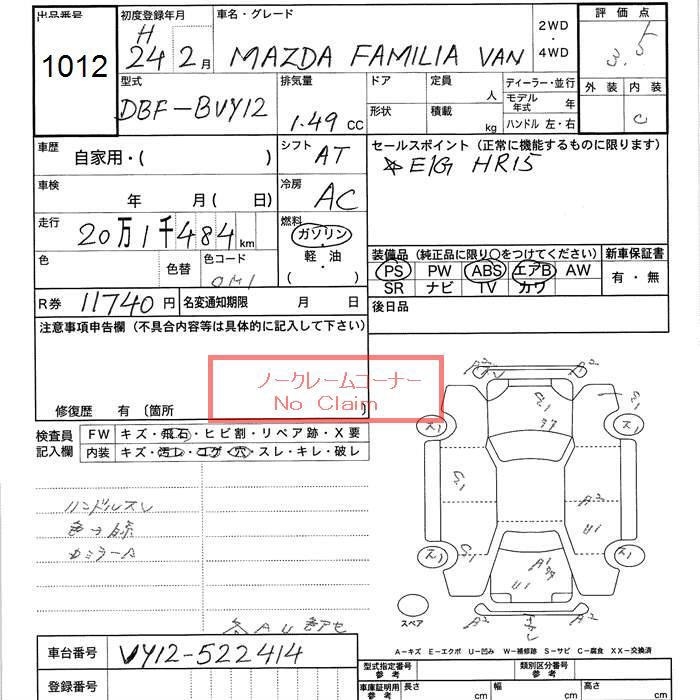 出品番号 初度登録年月 車名・グレード 2WD ・ 4WD 評価点
1012 H 24 2月 MAZDA FAMILIA VAN 3.5
型式 排気量 ドア 定員 人 ディーラー・並行 外装 内装
DBF-BVY12 1.49 CC 形状 積載 kg モデル年式 年 C
ハンドル 左・右
車歴 自家用・( ) シフト AT セールスポイント (正常に機能するものに限ります)
☆E/G HR15
車検 年 月 ( 日) 冷房 AC
走行 20万1千484km 燃料 ガソリン・軽油・( )
色 色替 色コード
装備品 (純正品に限り○をつけてください) 新車保証書
PS PW ABS エアB AW 有・無
SR ナビ TV カワ
R券 11740円 名変通知期限 月 日 後日品
注意事項申告欄 (不具合内容等は具体的に記入して下さい)
ノークレームコーナー
No Claim
修復歴 有 〔箇所 〕
検査員記入欄 FW キズ・飛石・ヒビ割・リペア跡・X要
内装 キズ・汚レ・コゲ・穴・スレ・キレ・破レ
ハンドルスレ
スペア
A-キズ E-エクボ U-凹み W-補修跡 S-サビ C-腐食 XX-交換済
車台番号 VY12-522414 型式指定番号 類別区分番号
登録番号 車庫証明用参考 長さ cm 幅 cm 高さ cm